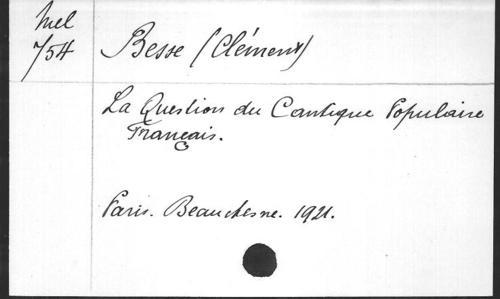 Mel
754
Besse (Clément)
La Question du Cantique Populaire
Français.
Paris. Beauchesne. 1921.